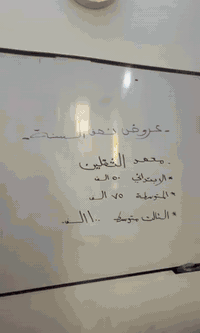 - عروض نهاية السنة -
. معهد الثقلين
* الابتدائي ٥٠ الف
* المتوسطة ٧٥ الف
* الثالث متوسط ١٠٠ الف